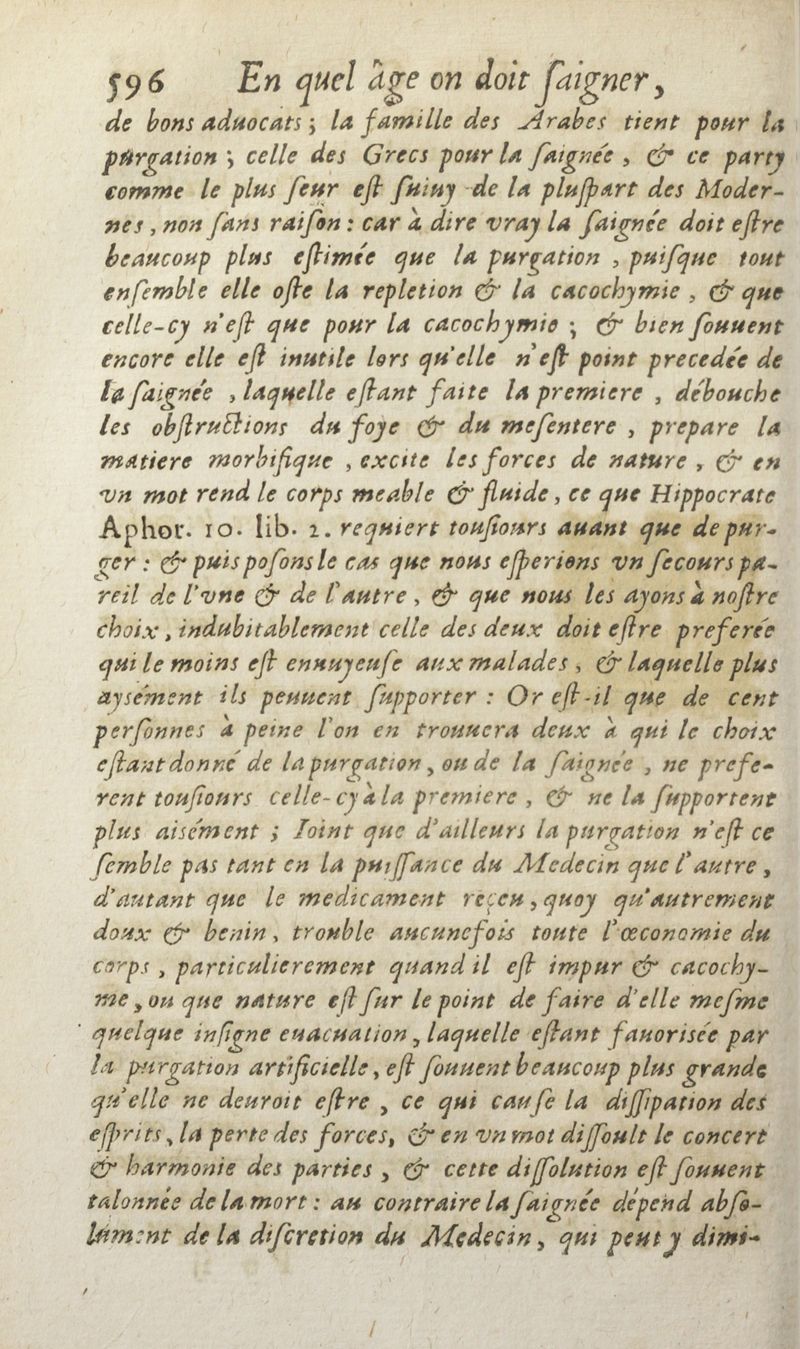 596 En quel âge on doit ſaigner,
de bons aduocats; la famille des Arabes tient pour la
purgation; celle des Grecs pour la ſaignée, & ce party
comme le plus ſeur eſt ſuiuy de la pluſpart des Moder-
nes, non ſans raiſon: car à dire vray la ſaignée doit eſtre
beaucoup plus eſtimée que la purgation, puiſque tout
enſemble elle oſte la repletion & la cacochymie, & que
celle-cy n'eſt que pour la cacochymie; & bien ſouuent
encore elle eſt inutile lors qu'elle n'eſt point precedée de
la ſaignée, laquelle eſtant faite la premiere, débouche
les obſtructions du foye & du meſentere, prepare la
matiere morbifique, excite les forces de nature, & en
vn mot rend le corps meable & fluide, ce que Hippocrate
Aphor. 10. lib. 2. requiert touſiours auant que de pur-
ger: & puis poſons le cas que nous eſperions vn ſecours pa-
reil de l'vne & de l'autre, & que nous les ayons à noſtre
choix, indubitablement celle des deux doit eſtre preferée
qui le moins eſt ennuyeuſe aux malades, & laquelle plus
aysément ils peuuent ſupporter: Or eſt-il que de cent
perſonnes à peine l'on en trouuera deux à qui le choix
eſtant donné de la purgation, ou de la ſaignée, ne prefe-
rent touſiours celle-cy à la premiere, & ne la ſupportent
plus aisément; Ioint que d'ailleurs la purgation n'eſt ce
ſemble pas tant en la puiſſance du Medecin que l'autre,
d'autant que le medicament reçeu, quoy qu'autrement
doux & benin, trouble aucunefois toute l'œconomie du
corps, particulierement quand il eſt impur & cacochy-
me, ou que nature eſt ſur le point de faire d'elle meſme
quelque inſigne euacuation, laquelle eſtant fauorisée par
la purgation artificielle, eſt ſouuent beaucoup plus grande
qu'elle ne deuroit eſtre, ce qui cauſe la diſſipation des
eſprits, la perte des forces, & en vn mot diſſoult le concert
& harmonie des parties, & cette diſſolution eſt ſouuent
talonnée de la mort: au contraire la ſaignée dépend abſo-
lument de la diſcretion du Medecin, qui peut y dimi-